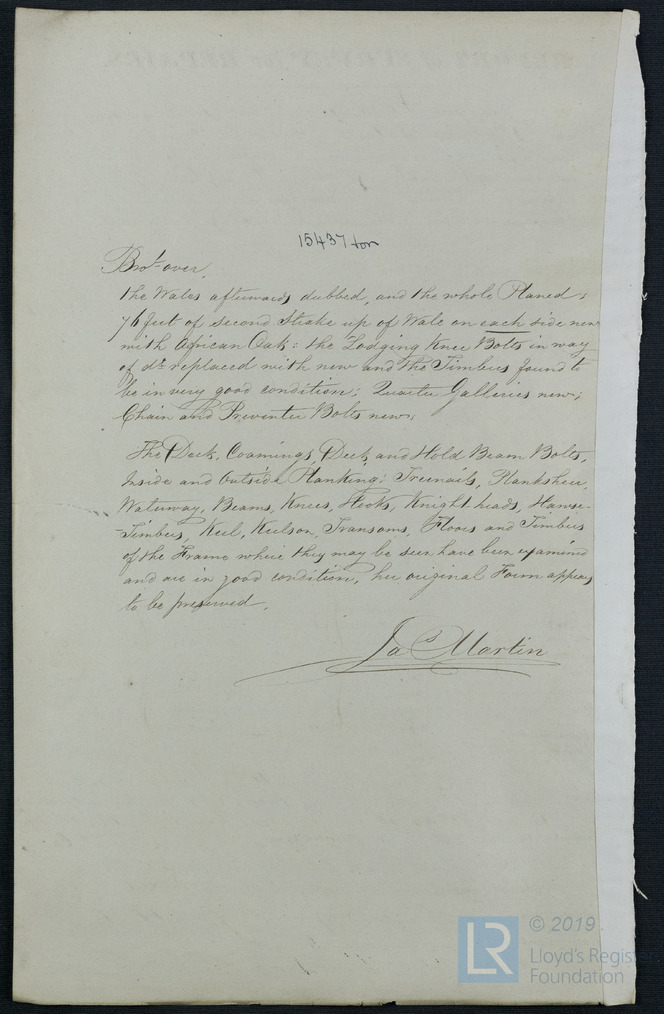 15437 ton
Brot over.
the Wales afterwards dubbed, and the whole Planed;
76 feet of second Strake up of Wale on each side new
with African Oak: the Lodging Knee Bolts in way
of do. replaced with new and the Timbers found to
be in very good condition; Quarter Galleries new;
Chain and Preventer Bolts new;
The Deck, Coamings, Deck and Hold Beam Bolts,
Inside and Outside Planking; Treenails, Planksheer,
Waterway, Beams, Knees, Hooks, Knight heads, Hawse-
-Timbers, Keel, Keelson, Transoms, Floors and Timbers
of the Frame where they may be seen have been examined
and are in good condition, her original Form appears
to be preserved.
Jas Martin
LR © 2019
Lloyd's Register
Foundation